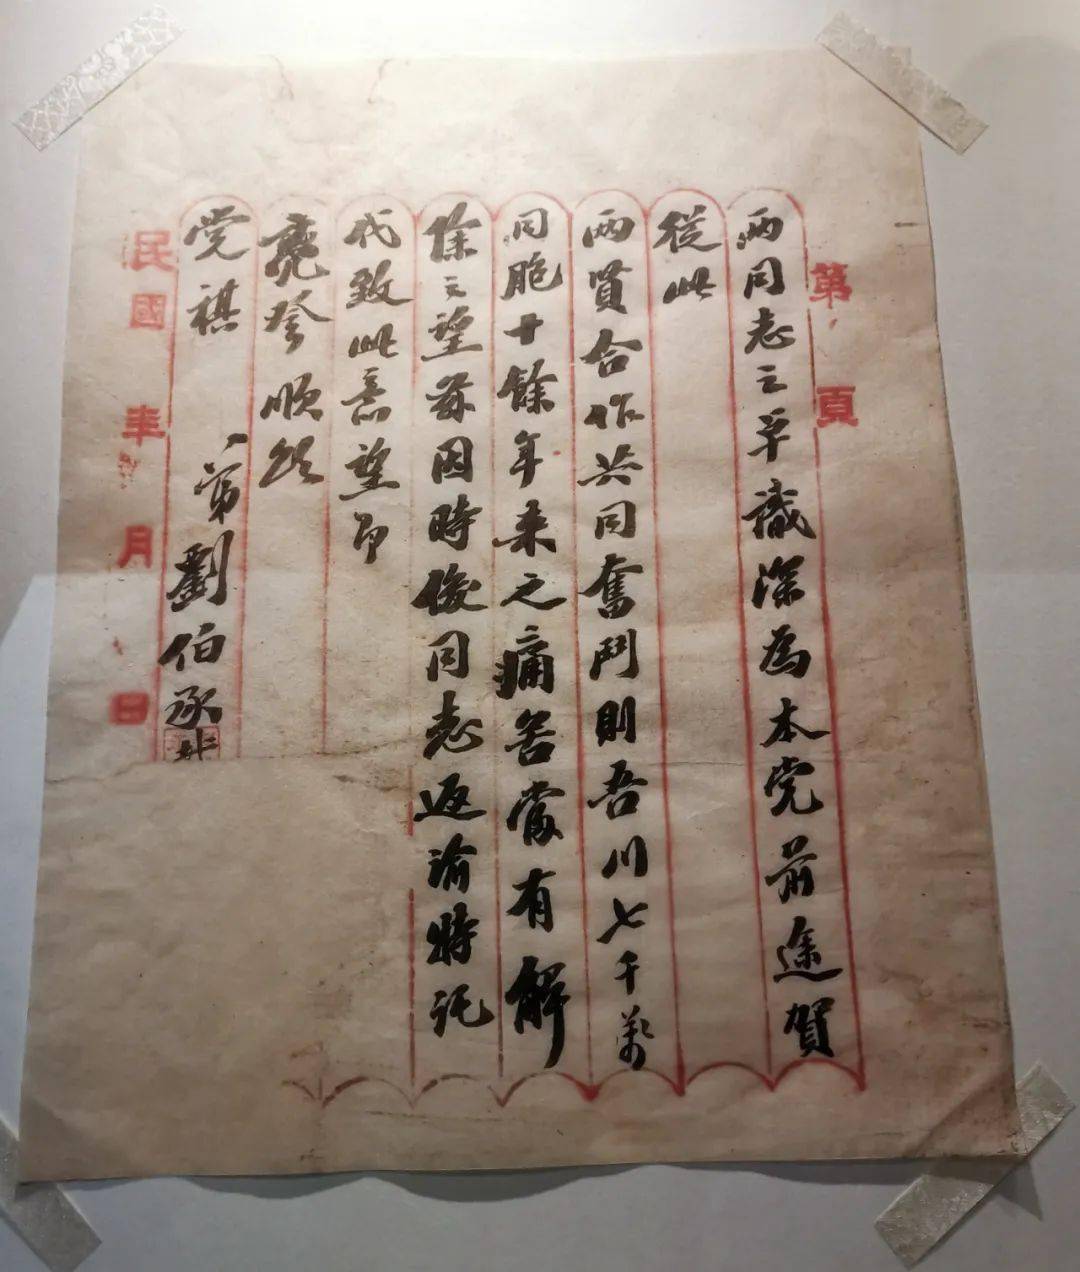 第 頁
兩同志之卓識深為本党前途賀
從此
兩賢合作共同奮鬥則吾川七千萬
同胞十餘年來之痛苦當有解
除之望茲因時俊同志返渝特託
代致此意望即
亮詧順頌
党祺 弟劉伯承
民國 年 月 日